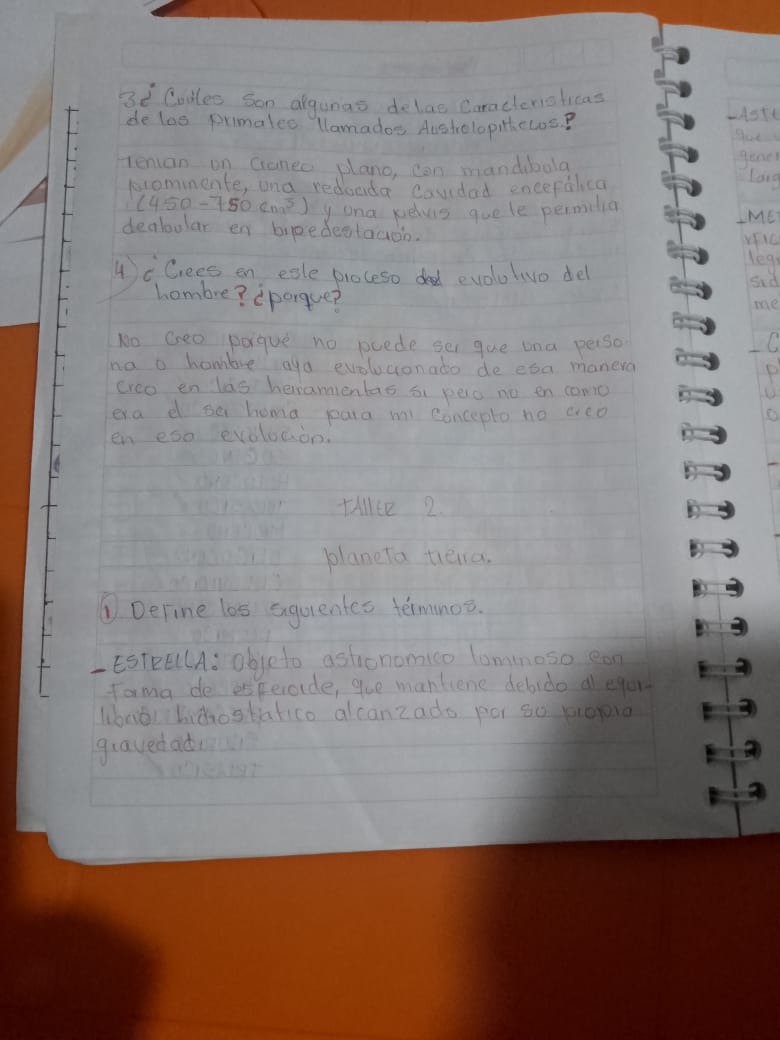 3¿ Cuáles son algunas de las características
de los primates llamados Austrolopithecus?
Tenian un craneo plano, con mandibula
prominente, una reducida cavidad encefálica
(450-750 cm³) y una pelvis que le permitia
deabular en bipedestación.
4) ¿Crees en este proceso evolutivo del
hombre? ¿porque?
No creo porqué no puede ser que una perso
na o hombre aya evolucionado de esa manera
creo en las herramientas si pero no en como
era el ser huma para mi concepto no creo
en esa evolución.
tAllER 2.
planeta tierra.
① Define los siguientes términos.
- ESTRELLA: objeto astronomico luminoso con
forma de esferoide, que mantiene debido al equi-
librio hidrostatico alcanzado por so propia
gravedad.
- AST
que
gener
larg
- ME
leg
sid
me
- C
p
o